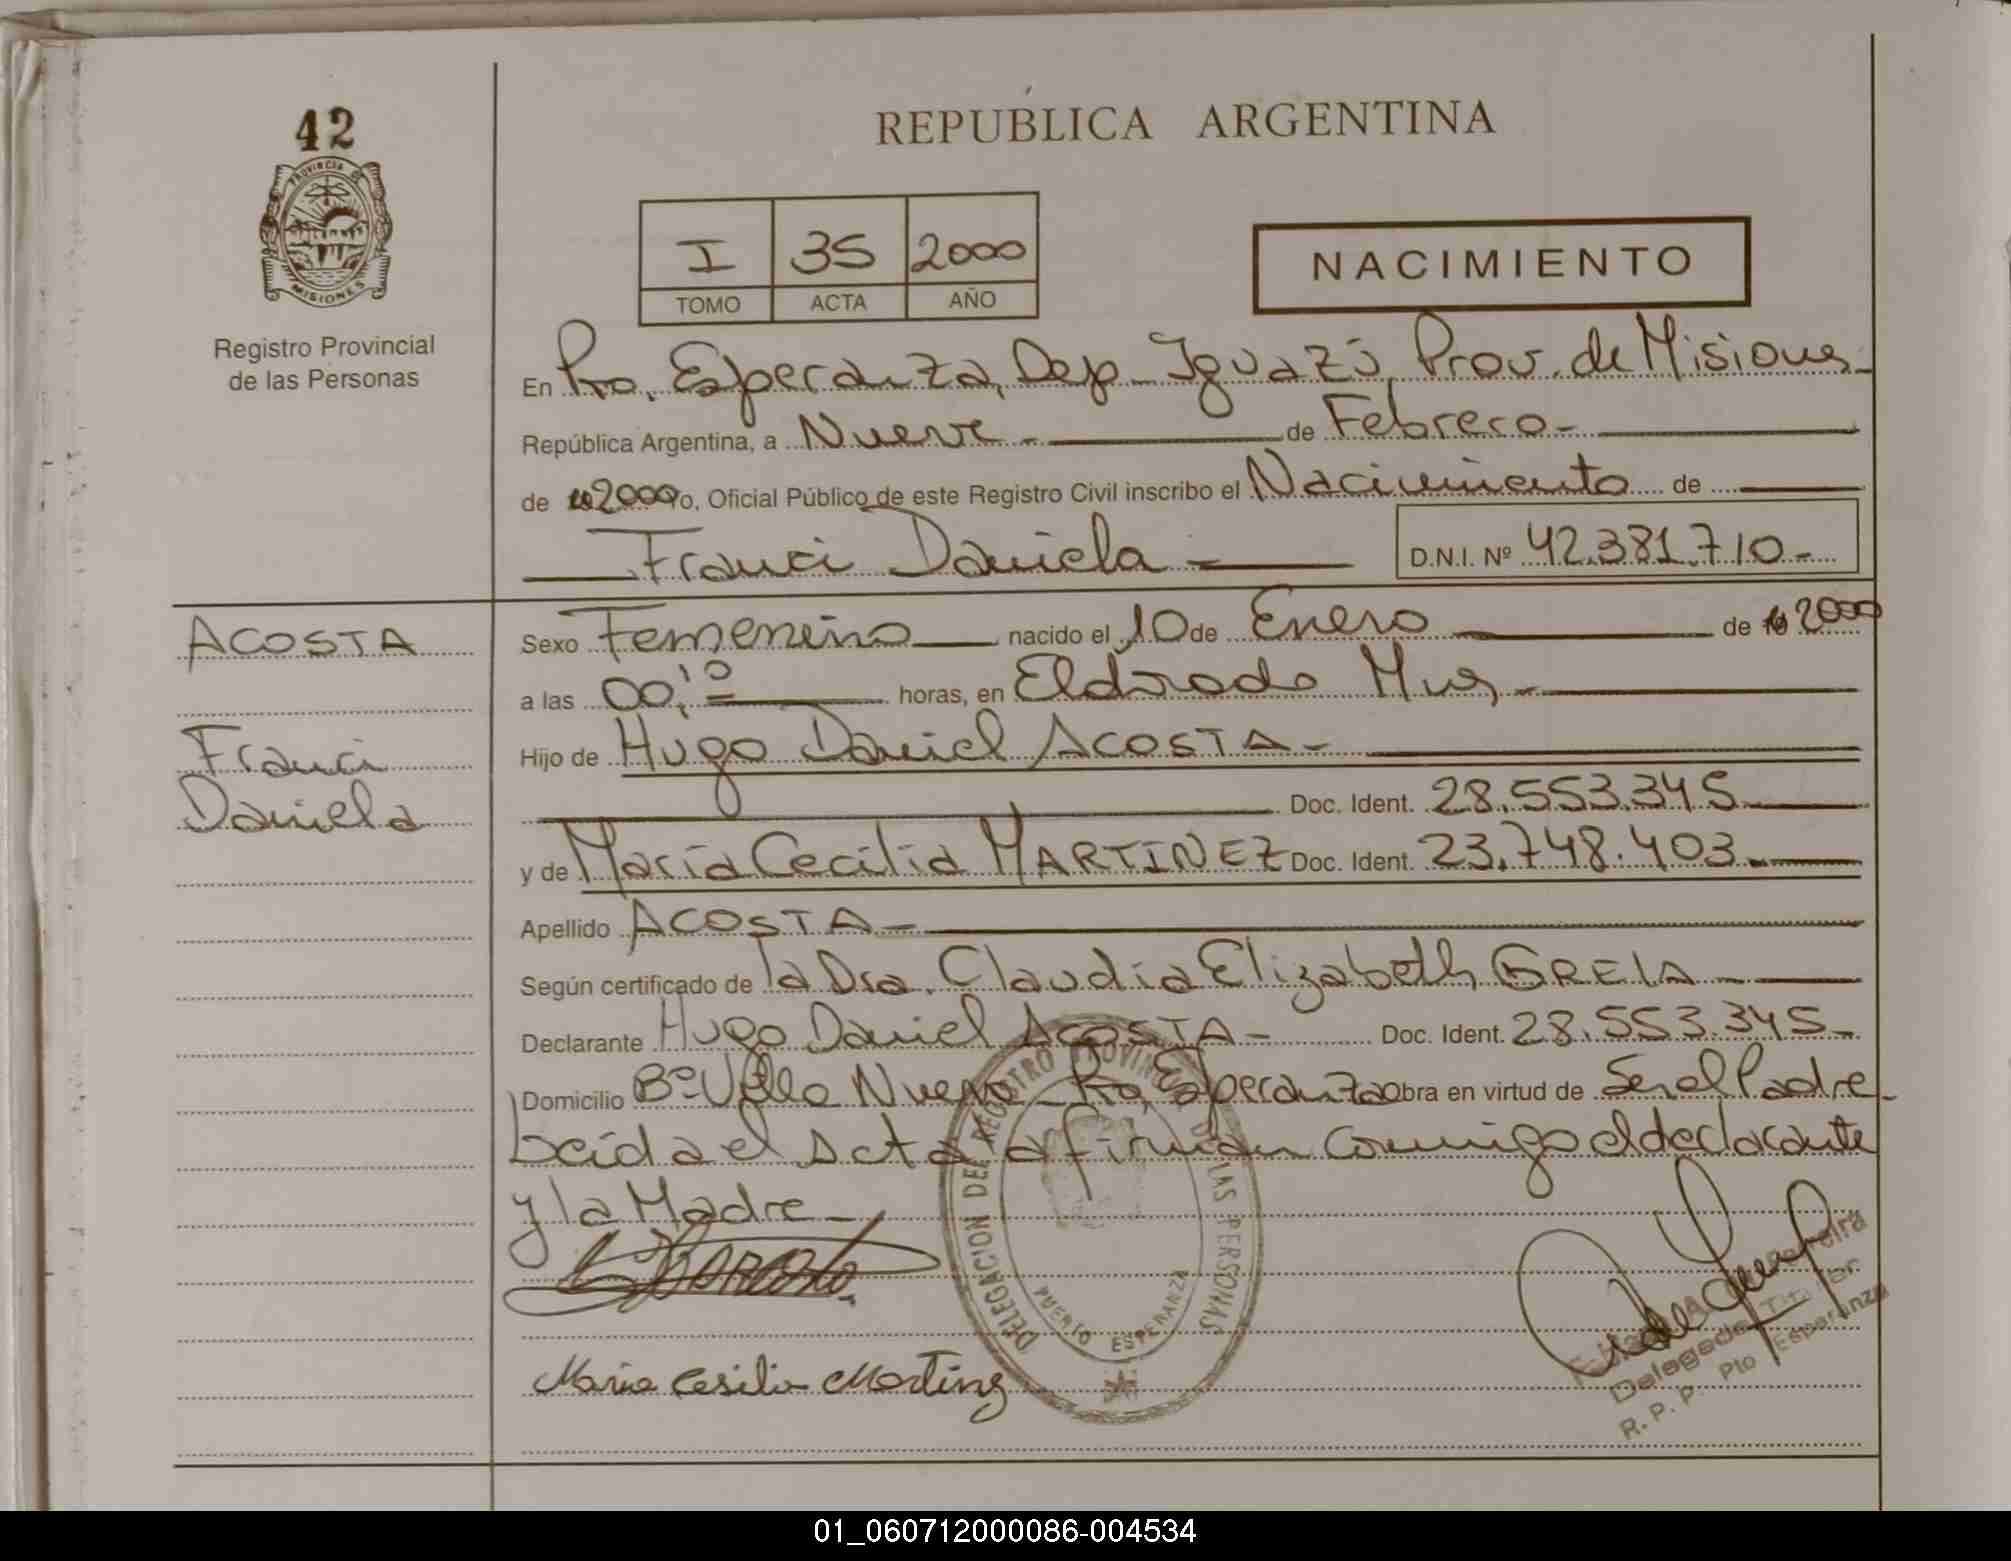 42
PROVINCIA DE
MISIONES
Registro Provincial
de las Personas
REPUBLICA ARGENTINA
I 35 2000
TOMO ACTA AÑO
NACIMIENTO
En Pto. Esperanza, Dep. Iguazú, Prov. de Misiones
República Argentina, a Nueve de Febrero
de 2000 o, Oficial Público de este Registro Civil inscribo el Nacimiento de
Franci Daniela D.N.I. Nº 42.381.710
ACOSTA
Franci
Daniela
Sexo Femenino nacido el 10 de Enero de 2000
a las 00,10 horas, en Eldorado Mnes
Hijo de Hugo Daniel ACOSTA
Doc. Ident. 28.553.345
y de María Cecilia MARTINEZ Doc. Ident. 23.748.403
Apellido ACOSTA
Según certificado de la Dra. Claudia Elizabeth GRELA
Declarante Hugo Daniel ACOSTA Doc. Ident. 28.553.345
Domicilio Bº Villa Nueva Pto. Esperanza obra en virtud de Ser el Padre
Leída el Acta la firman conmigo el declarante
y la Madre
Maria Cesilia Martinez
DELEGACION DEL REGISTRO PROVINCIAL DE LAS PERSONAS
PUERTO ESPERANZA
Ferreira
Delegada Titular
R. P. P. Pto Esperanza
01_060712000086-004534